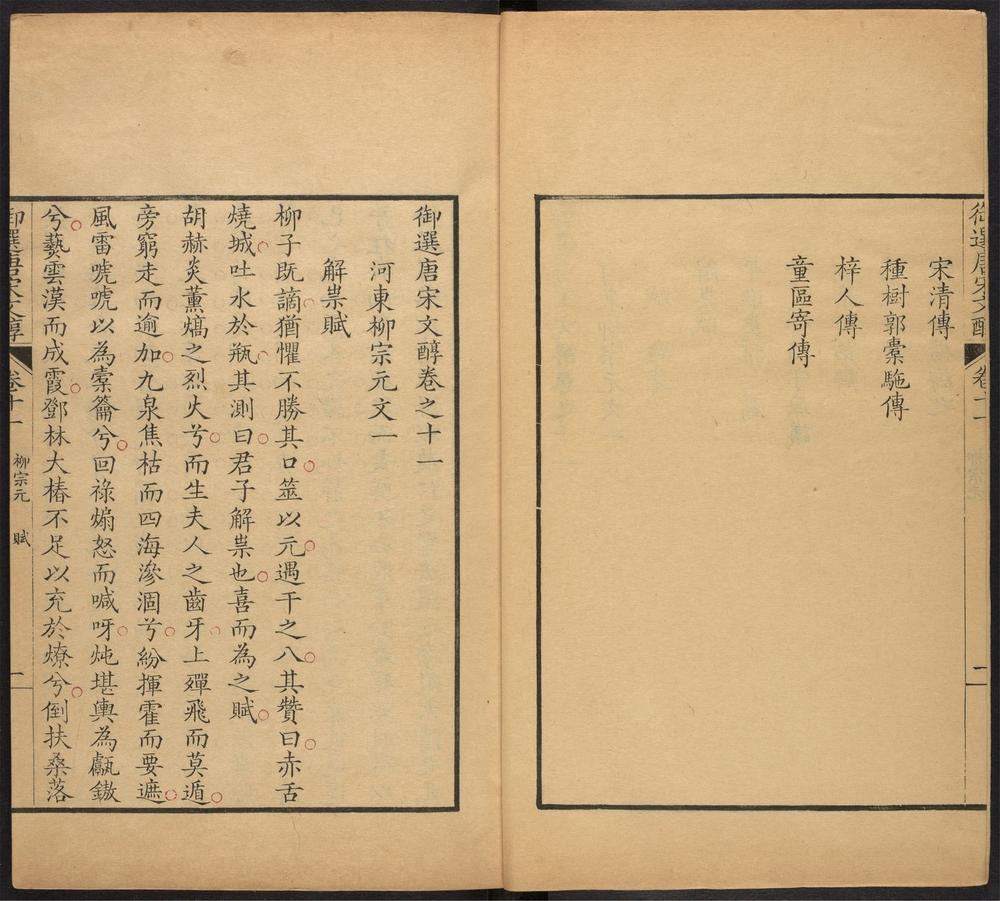 御選唐宋文醇
卷十一
柳宗元
二
宋清傳
種樹郭橐駞傳
梓人傳
童區寄傳
御選唐宋文醇卷之十一
河東柳宗元文一
解祟賦
柳子既謫猶懼不勝其口筮以元遇干之八其贊曰赤舌
燒城吐水於瓶其測曰君子解祟也喜而為之賦
胡赫炎薰熇之烈火兮而生夫人之齒牙上殫飛而莫遁
旁窮走而逾加九泉焦枯而四海滲涸兮紛揮霍而要遮
風雷唬唬以為橐籥兮回祿煽怒而喊呀炖堪輿為甗鏉
兮爇雲漢而成霞鄧林大椿不足以充於燎兮倒扶桑落
御選唐宋文醇
卷十一
柳宗元 賦